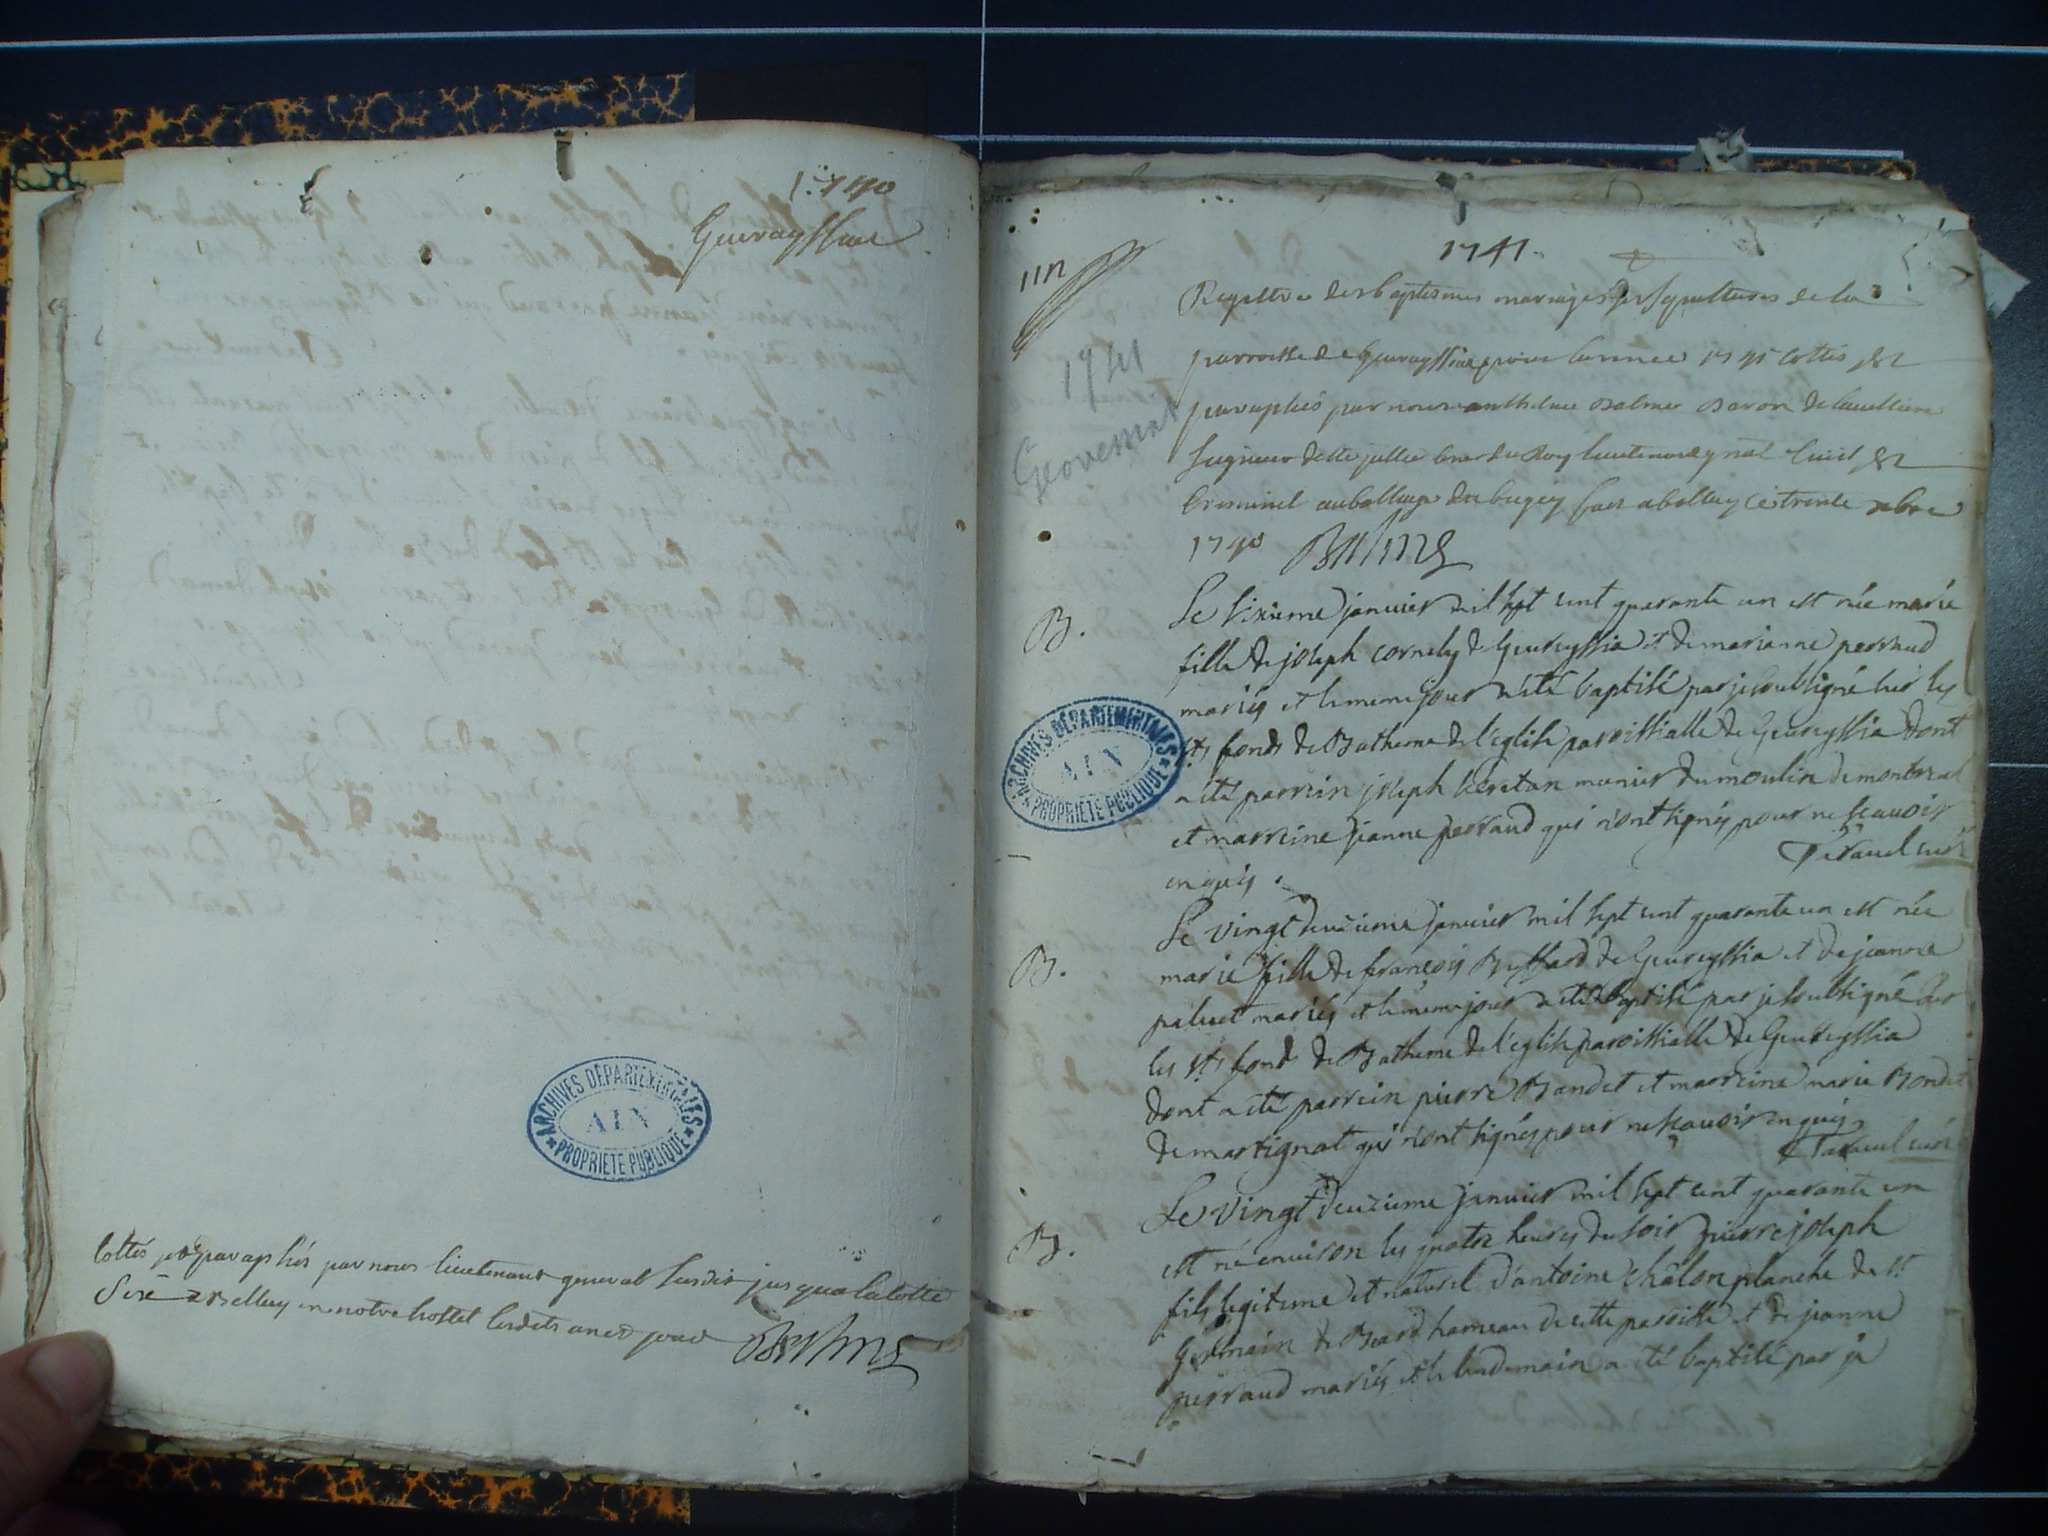 1740
Guereyssiat
ARCHIVES DÉPARTEMENTALES
AIN
PROPRIÉTÉ PUBLIQUE
Cottés et paraphés par nous lieutenant general susdit jusqua la cotte
Sixe a Belley en notre hostel lesdits an et jour
1741
1741
Registre des baptesmes mariages et sepultures de la
parroisse de pour lannee 1741 cottés et
paraphés par nous anthelme Balme Baron de
Seigneur de Ste jullie Coner du Roy lieutenant gnal Civil et
Criminel au balliage du bugey fait a belley ce trente xbre
1740 Balme
B.
Le sixieme janvier mil sept cent quarante un est née marie
fille de joseph cornely de Geureyssia et de marianne perraud
mariés et le meme jour a été baptisé par je soubsigné sur les
sts fonds de Batheme de l'eglise paroissialle de Geureyssia dont
a été parrein joseph munier du moulin de montreal
et marreine jeanne perraud qui n'ont signés pour ne scavoir
enquis.
curé
B.
Le vingt deuzieme janvier mil sept cent quarante un est née
marie fille de françois Buffard de Geureyssia et de jeanne
paluet mariés et le meme jour a été baptisé par je soubsigné sur
les sts fonds de Batheme de l'eglise paroissialle de Geureyssia
dont a été parrein pierre Bondet et marreine marie Bondet
de martignat qui n'ont signés pour ne scavoir enquis
curé
B.
Le vingt deuzieme janvier mil sept cent quarante un
est né environ les quatre heures du soir pierre joseph
fils legitime et naturel d'antoine châlon planche de st
Germain de Beard hameau de cette paroisse et de jeanne
perraud mariés et le lendemain a été baptisé par je
ARCHIVES DÉPARTEMENTALES
AIN
PROPRIÉTÉ PUBLIQUE